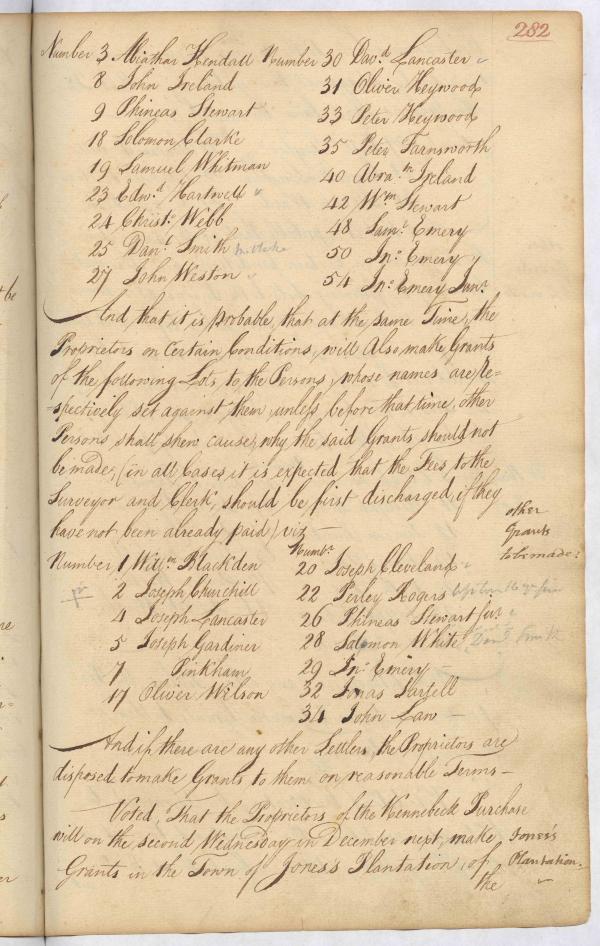 282
Number 3 Abiathar Kendall Number 30 Dav.d Lancaster
8 John Ireland 31 Oliver Heywood
9 Phineas Stewart 33 Peter Heywood
18 Solomon Clarke 35 Peter Farnsworth
19 Samuel Whitman 40 Abra.m Ireland
23 Edw.d Hartwell 42 W.m Stewart
24 Christ.o Webb 48 Sam.l Emery
25 Dan.l Smith mistake 50 Jn.o Emery
27 John Weston 54 Jn.o Emery Jun.r
And that it is probable, that at the same Time, the
Proprietors on Certain Conditions, will Also, make Grants
of the following Lots, to the Persons, whose names are, Re-
-spectively set against them, unless before that time, other
Persons shall shew cause, why the said Grants should not
be made, (in all Cases it is expected that the Fees to the
Surveyor and Clerk, should be first discharged, if they
have not been already paid) viz
other
Grants
to be made
Number 1 Will.m Blackden Numb.r 20 Joseph Cleveland
2 Joseph Churchill 22 Perley Rogers
4 Joseph Lancaster 26 Phineas Stewart jur.
5 Joseph Gardiner 28 Salomon White Dan.l Smith
7 Pinkham 29 Jn.o Emery
17 Oliver Wilson 32 Jonas Sartell
34 John Law
And if there are any other Settlers, the Proprietors are
disposed to make Grants to them on reasonable Terms
Voted, That the Proprietors of the Kennebeck Purchase
will on the second Wednesday in December next, make
Grants in the Town of Jones's Plantation, of
the
Jones's
Plantation.